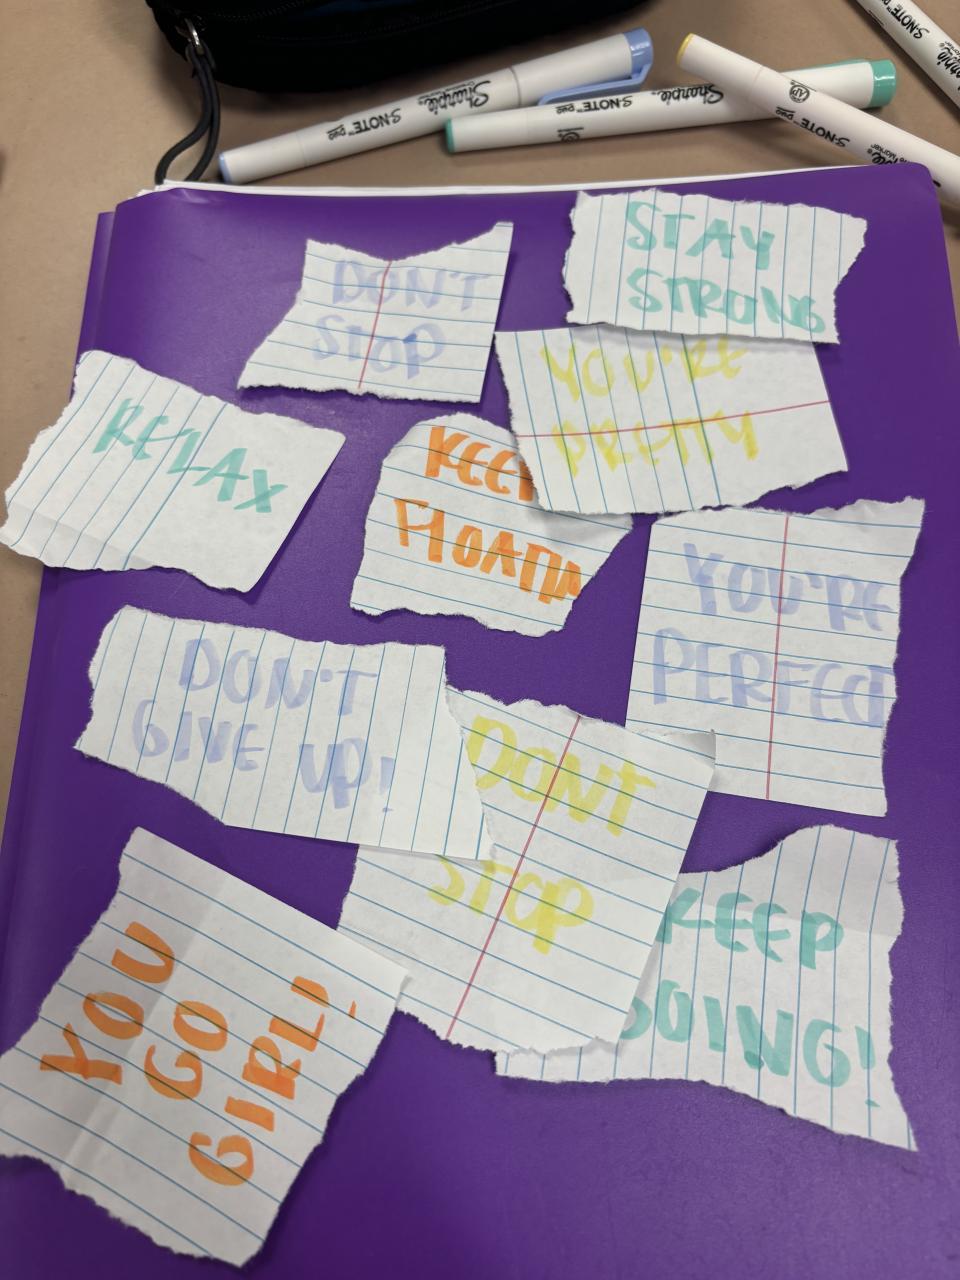 Sharpie
S·NOTE™ DUO
Sharpie
S·NOTE™ DUO
S·NOTE™ DUO
S·NOTE
Sharpie
DON'T
STOP
STAY
STRONG
YOU'RE
PRETTY
RELAX
KEEP
FLOATIN
YOU'RE
PERFECT
DON'T
GIVE UP!
DONT
STOP
KEEP
GOING!
YOU
GO
GIRL!